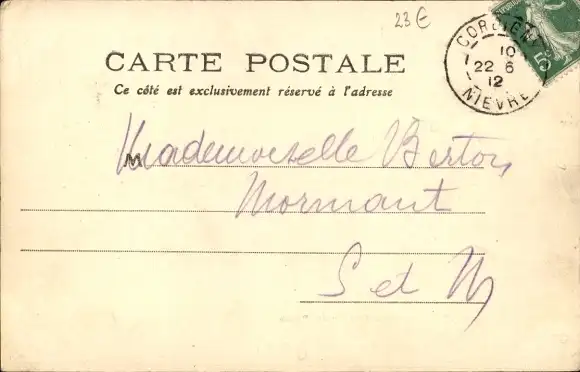 23 €
CARTE POSTALE
Ce côté est exclusivement réservé à l'adresse
CORBIGNY
10
22 6
12
NIEVRE
5
Mademoiselle Berton
Mormant
S et M